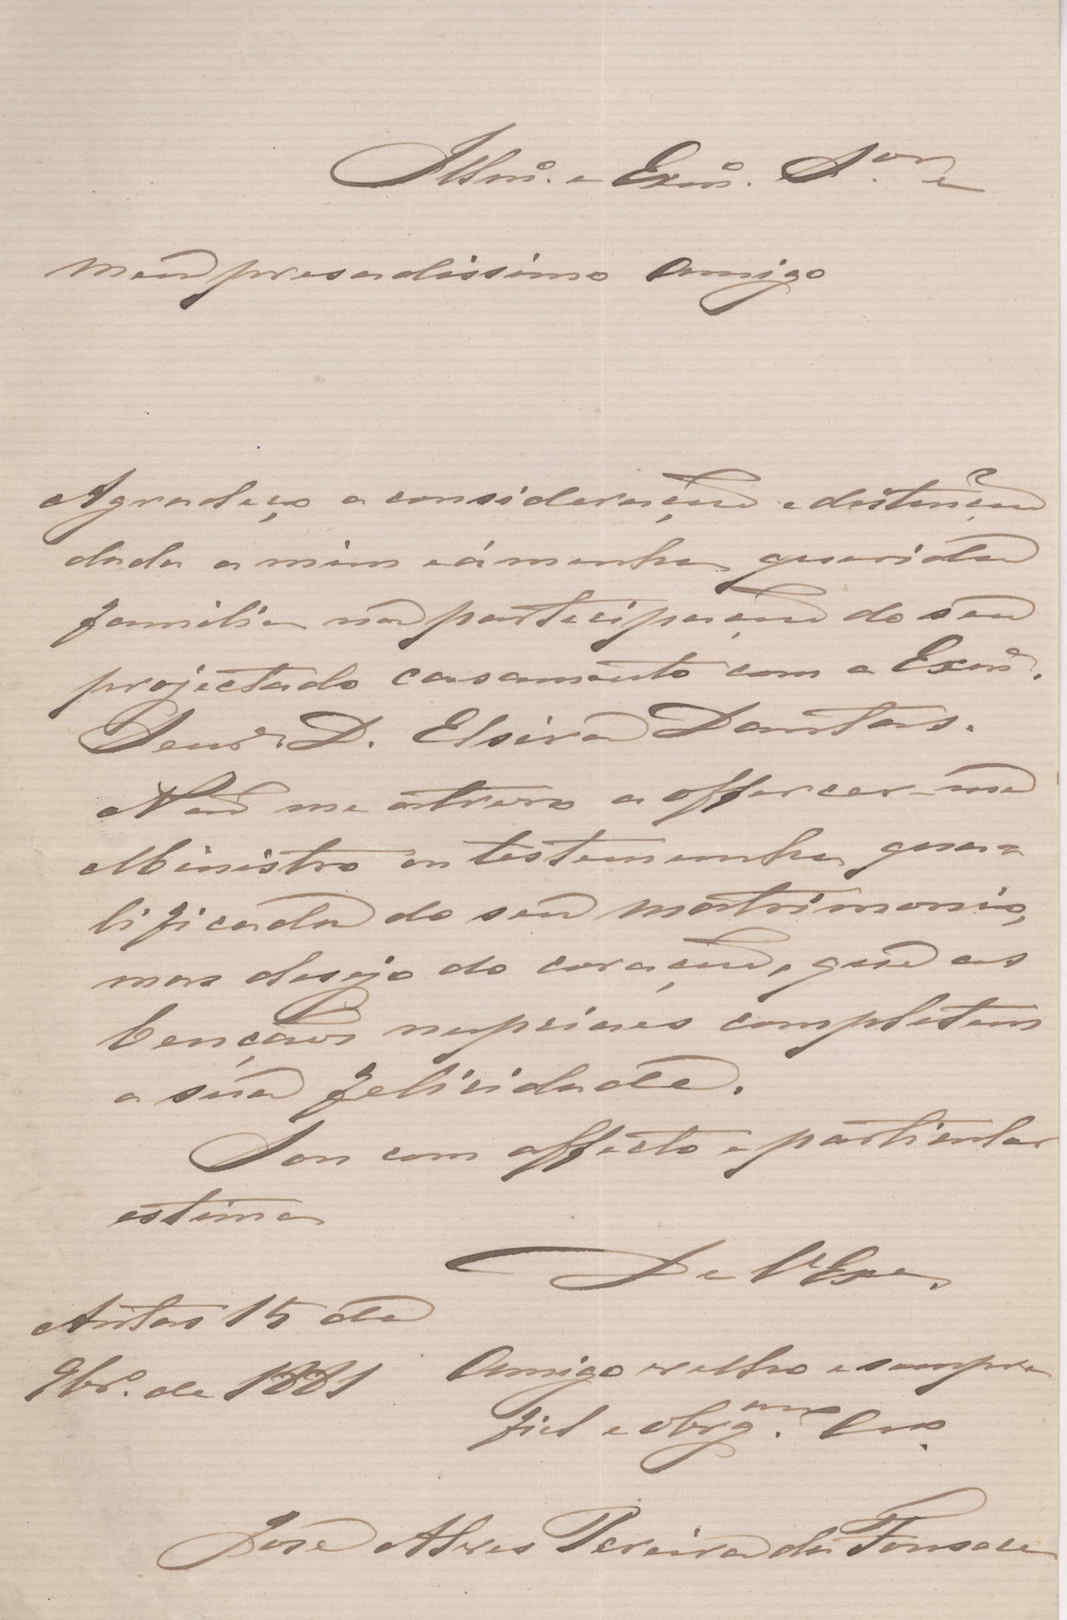 Illmº. e Exmº. S.or e
meu presadissimo amigo
Agradeço a consideração e distinção
dada a mim e á minha querida
familia na participação do seu
projectado casamento com a Exmª.
Senrª D. Elvira Dantas.
Não me atrevo a offerecer-me
Ministro ou testemunha qua-
lificada do seu matrimonio,
mas desejo do coração, que as
bençãos nupciaes completem
a sua felicidade.
Sou com affecto e particular
estima
De V. Exa.
Antas 15 de
9brº. de 1881
Amigo velho e sempre
fiel e obrg.mo Cro.
José Alves Pereira da Fonseca